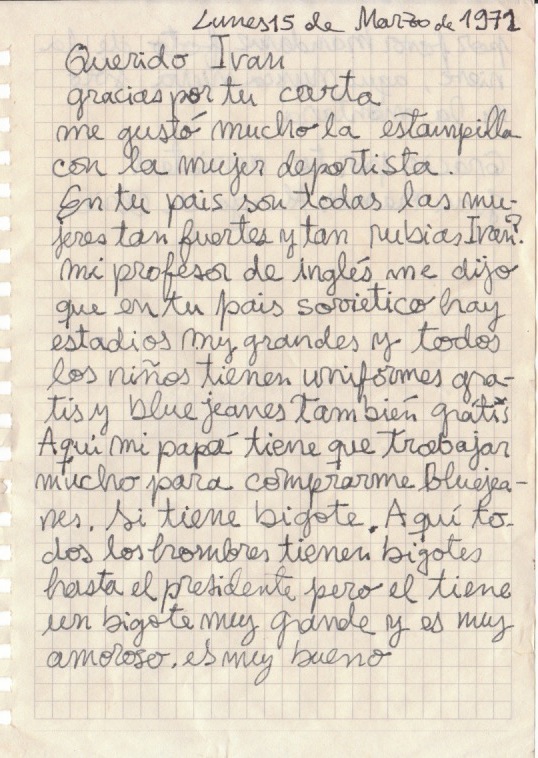 Lunes 15 de Marzo de 1971
Querido Ivan
gracias por tu carta
me gustó mucho la estampilla
con la mujer deportista.
En tu pais son todas las mu-
jeres tan fuertes y tan rubias Ivan?
mi profesor de inglés me dijo
que en tu pais sovietico hay
estadios my grandes y todos
los niños tienen uniformes gra-
tis y blue jeanes también gratis
Aquí mi papá tiene que trabajar
mucho para comprarme bluejea-
nes. Si tiene bigote. Aquí to-
dos los hombres tienen bigotes
hasta el presidente pero el tiene
un bigote muy grande y es muy
amoroso. es muy bueno